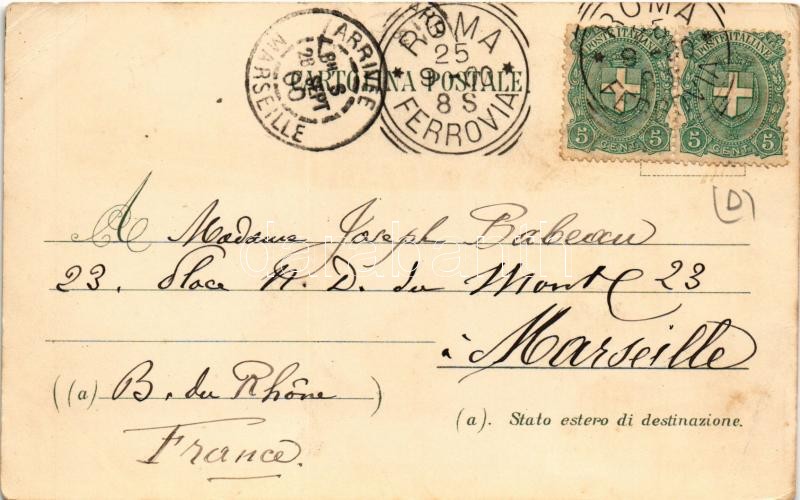 ARRIVÉE
26 SEPT
00
MARSEILLE
ROMA
25
9-00
8 S
FERROVIA
ROMA
POSTE ITALIANE POSTE ITALIANE
5 CENT. 5 5 CENT. 5
CARTOLINA POSTALE.
(D)
A Madame Joseph Babeau
23. Place N. D. du Mont 23
à Marseille
(a) B. du Rhône
(a). Stato estero di destinazione.
France.
darabanth.com